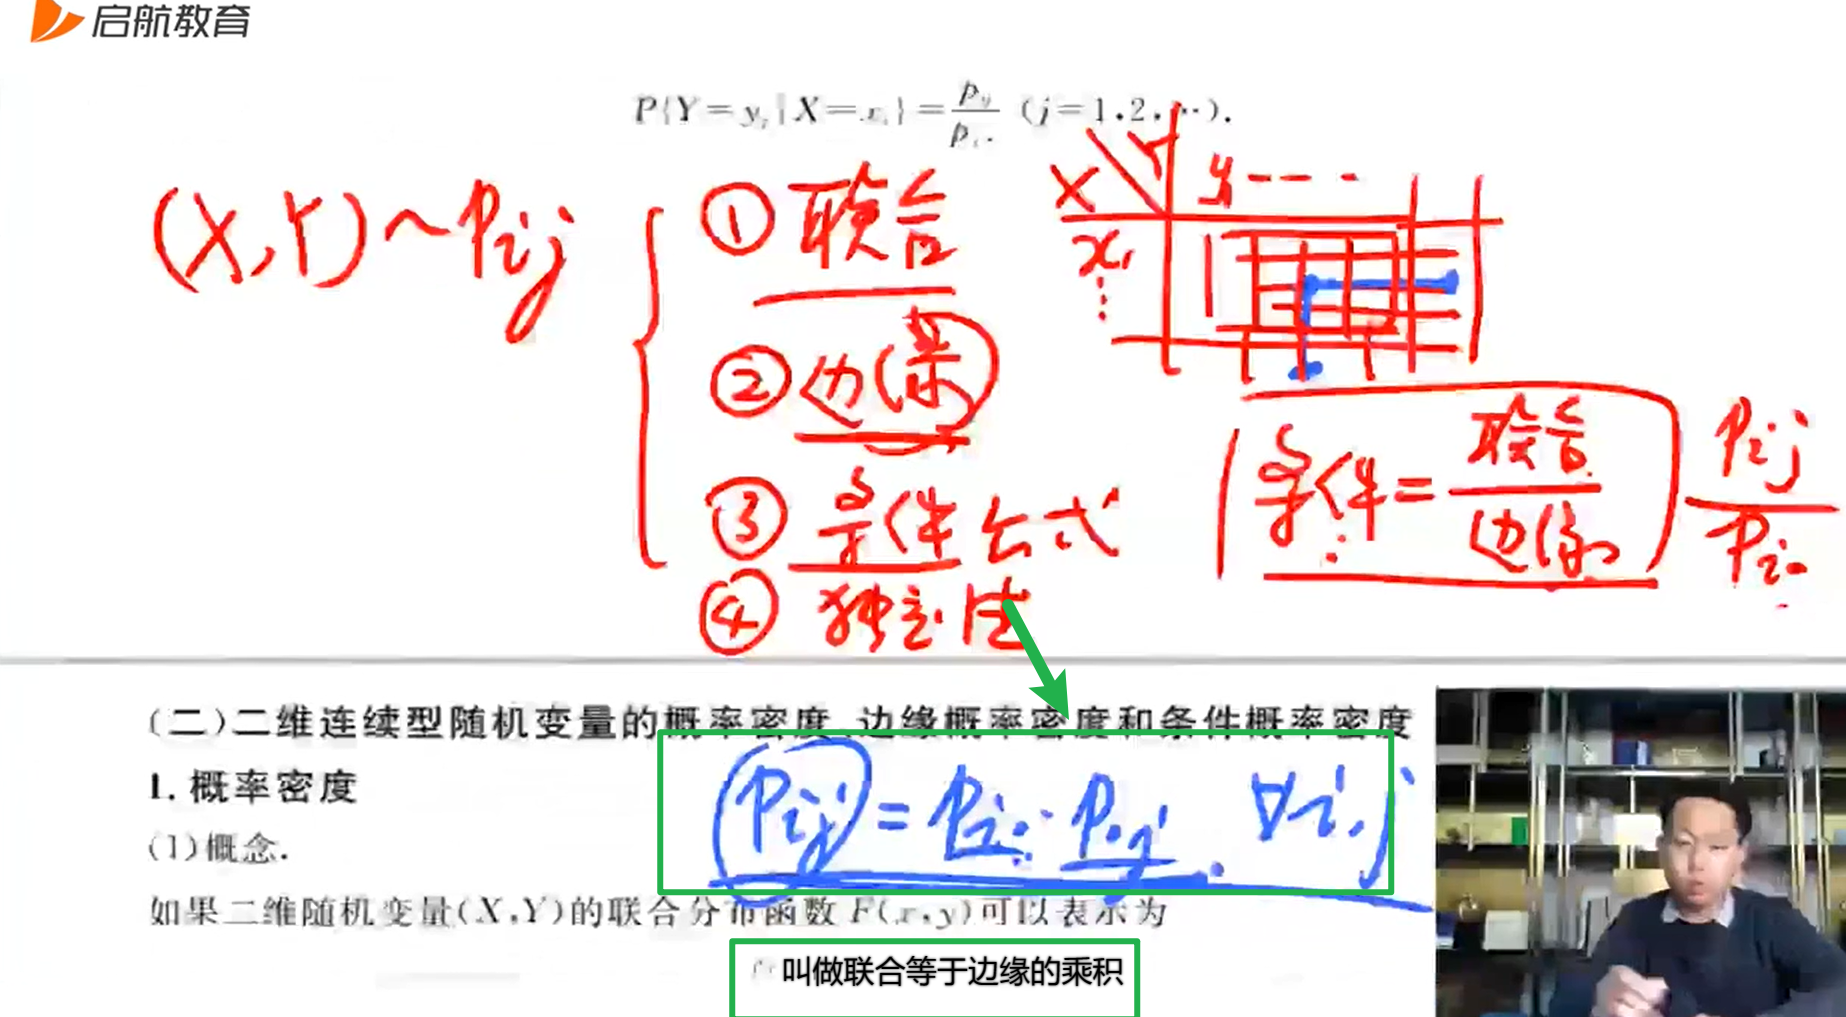 启航教育
P{Y=y_j|X=x_i}=p_ij/p_i· (j=1,2,…).
(X,Y)~P_ij
① 联合
② 边缘
③ 条件公式
④ 独立性
X Y y₁ ---
x₁
⋮
条件=联合/边缘
P_ij/P_i·
(二)二维连续型随机变量的概率密度、边缘概率密度和条件概率密度
1. 概率密度
P_ij = P_i· · P_·j ∀i,j
(1)概念.
如果二维随机变量(X,Y)的联合分布函数F(x,y)可以表示为
叫做联合等于边缘的乘积